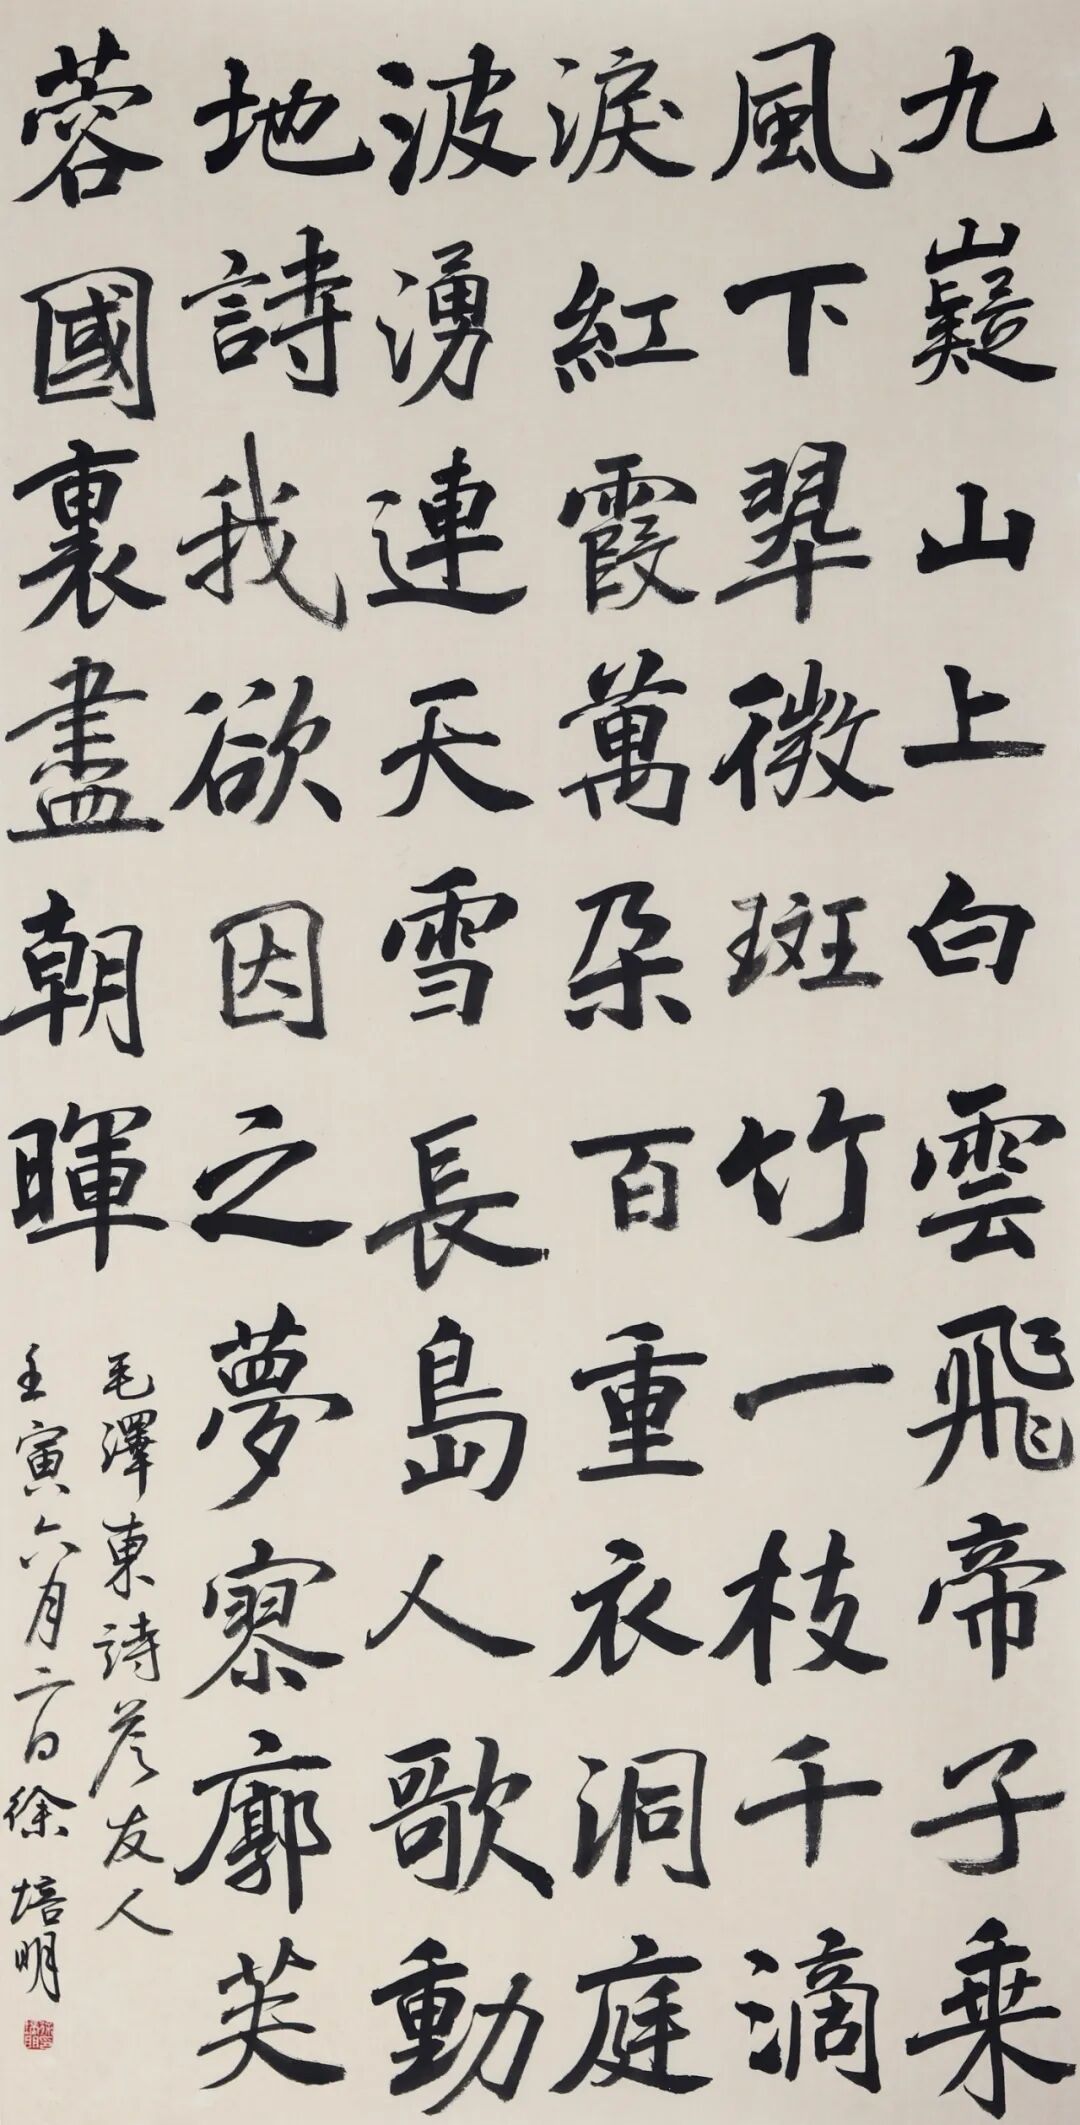 九嶷山上白雲飛帝子乗
風下翠微斑竹一枝千滴
淚紅霞萬朵百重衣洞庭
波湧連天雪長島人歌動
地詩我欲因之夢寥廓芙
蓉國裏盡朝暉
毛澤東詩答友人
壬寅六月二日徐培明